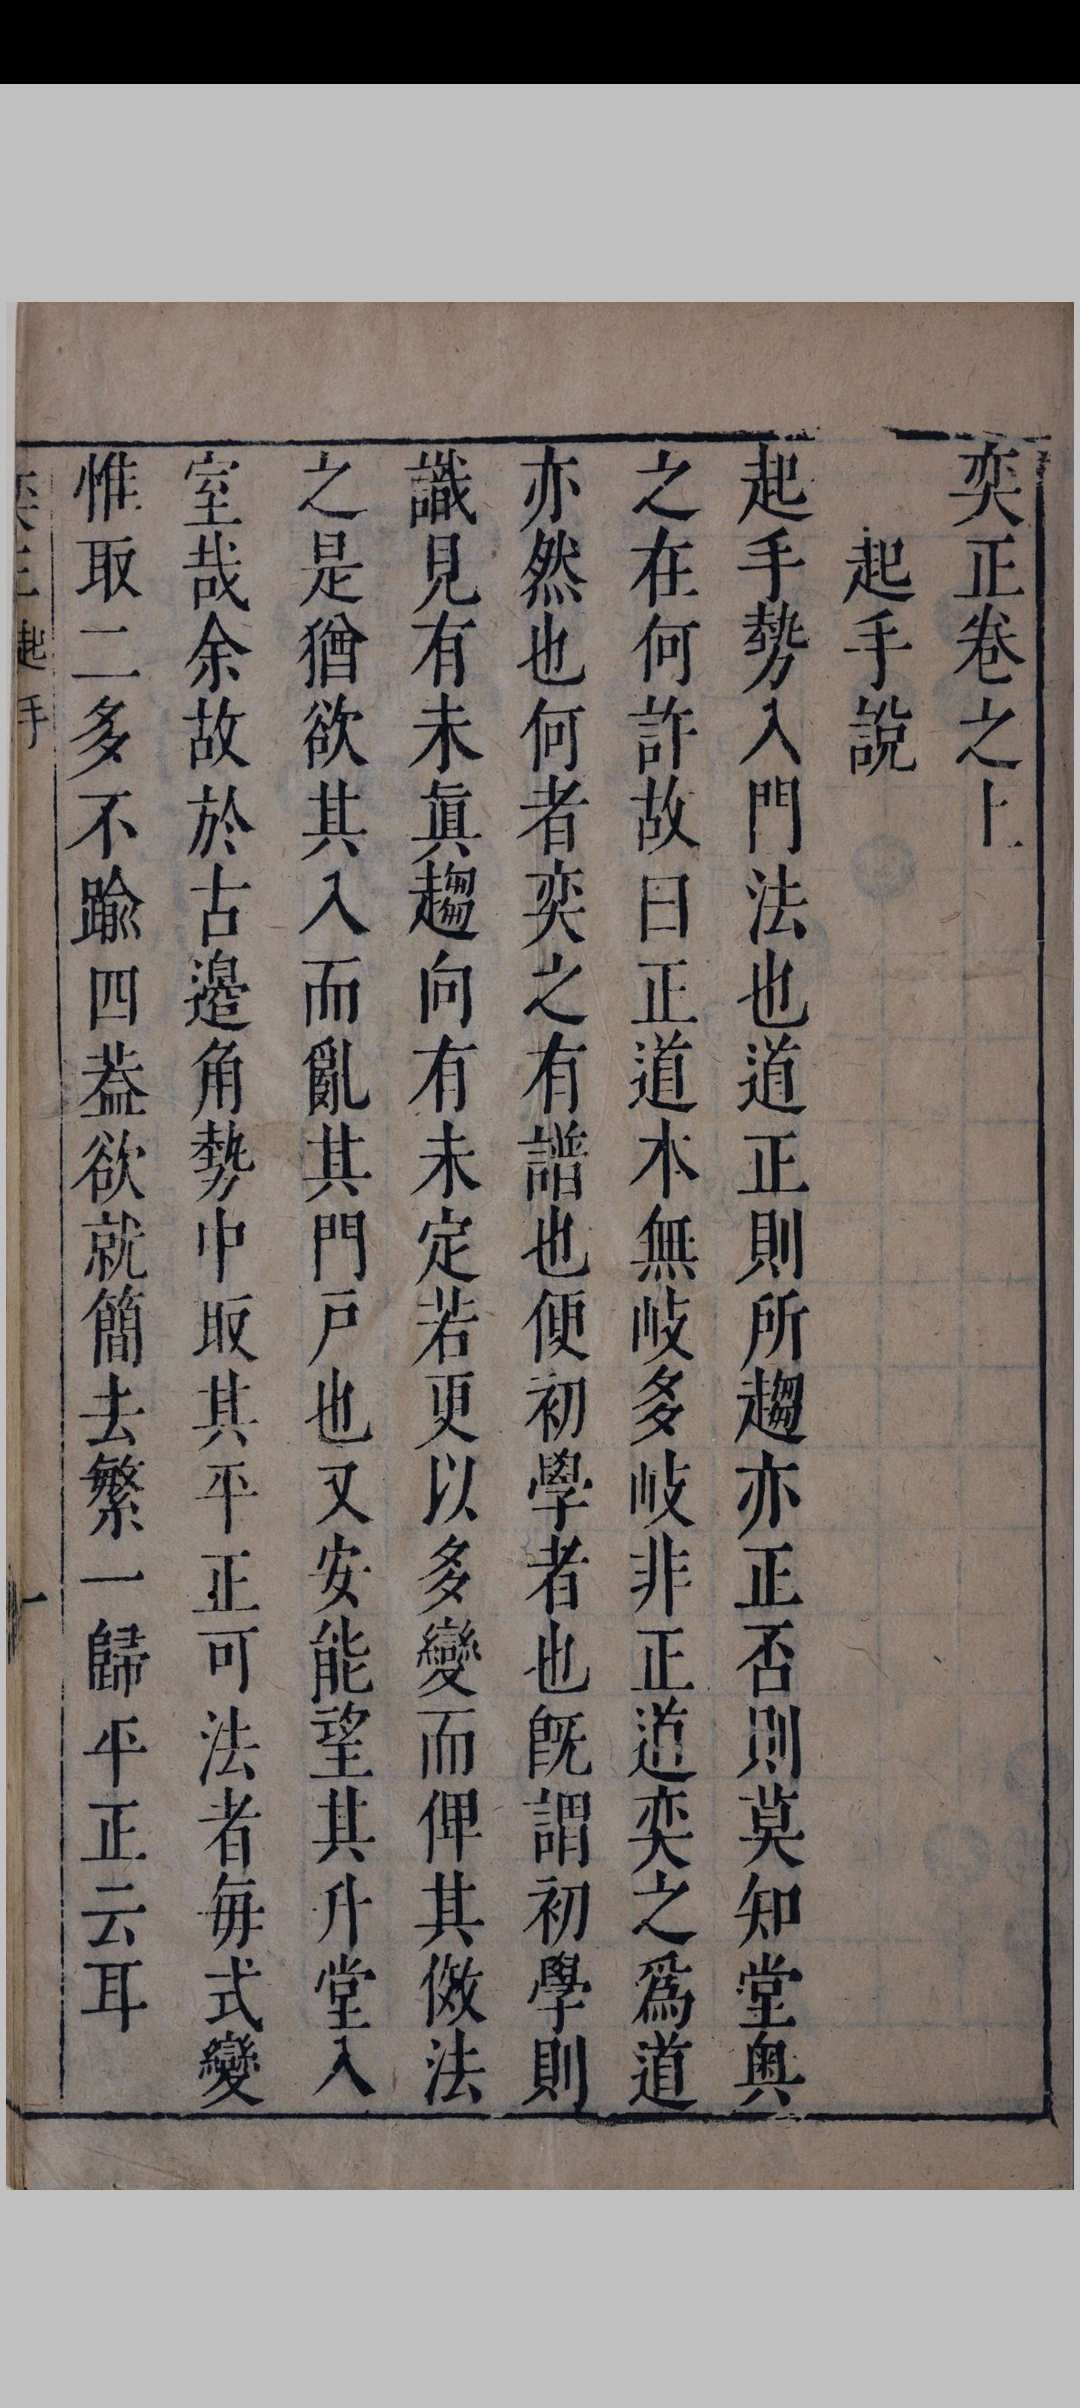 奕正卷之上
起手說
起手勢入門法也道正則所趨亦正否則莫知堂奥
之在何許故曰正道本無岐多岐非正道奕之爲道
亦然也何者奕之有譜也便初學者也旣謂初學則
識見有未眞趨向有未定若更以多變而俾其倣法
之是猶欲其入而亂其門戶也又安能望其升堂入
室哉余故於古邊角勢中取其平正可法者每式變
惟取二多不踰四葢欲就簡去繁一歸平正云耳
奕正 起手 一